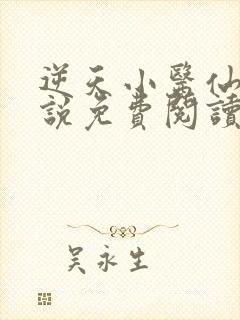 逆天小醫仙
說免費閱讀
吳永生